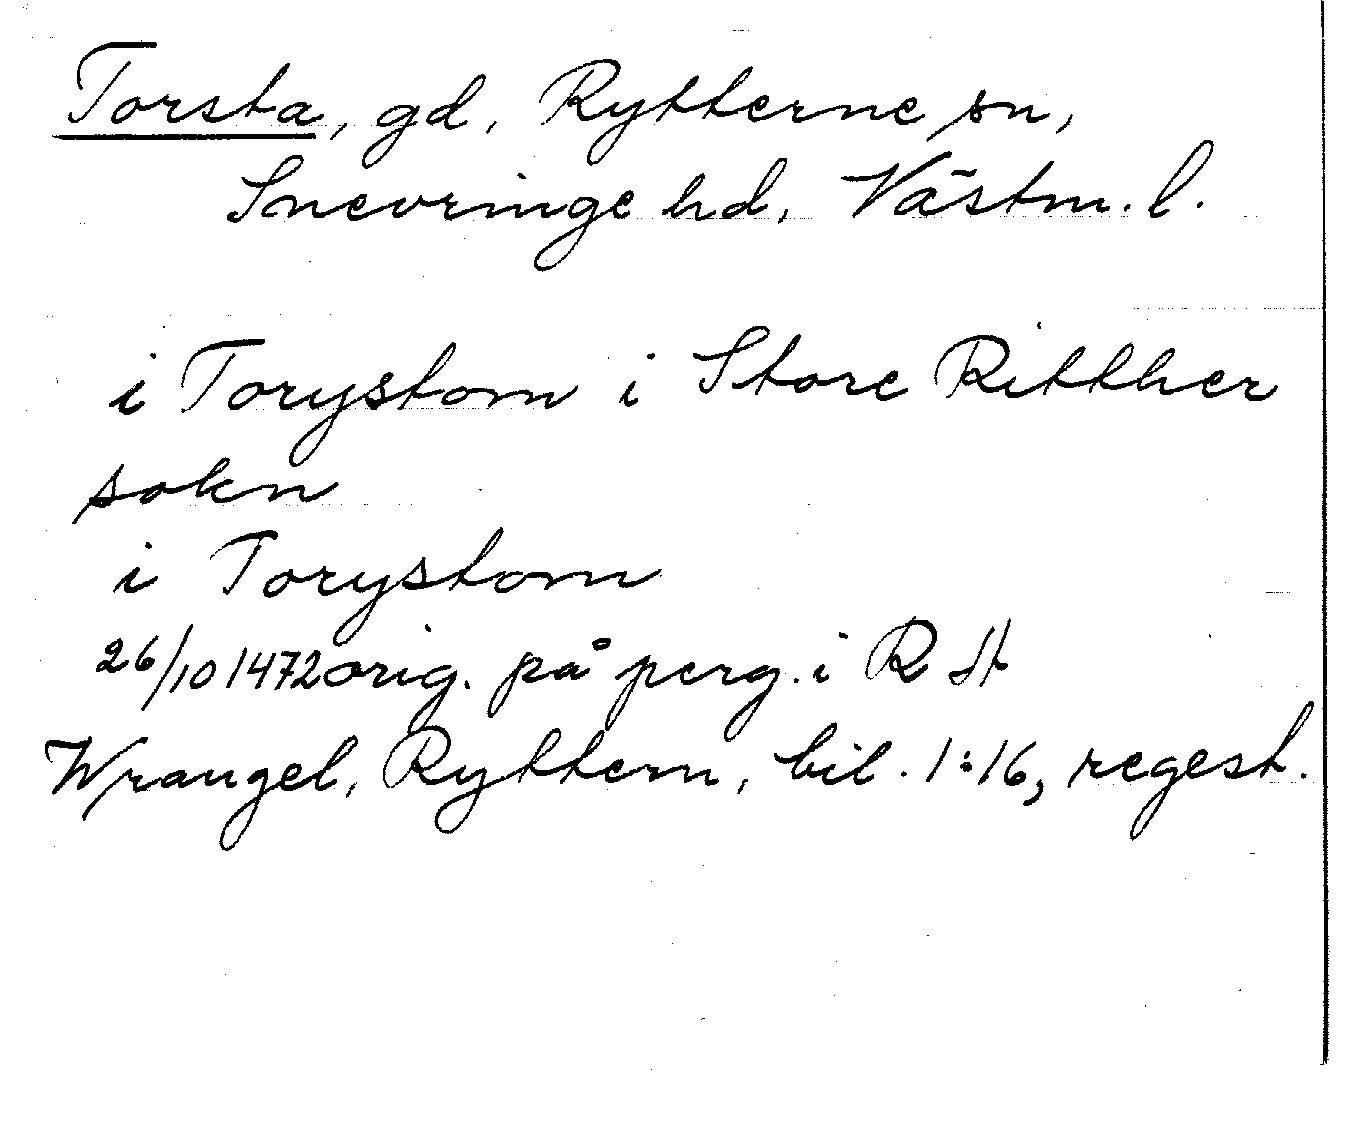 Torsta, gd, Rytterne sn,
Snevringe hd, Västm. l.
i Torystom i Store Ritther
sokn
i Torystom
26/10 1472 orig. på perg. i R A
Wrangel, Ryttern, bil. 1:16, regest.